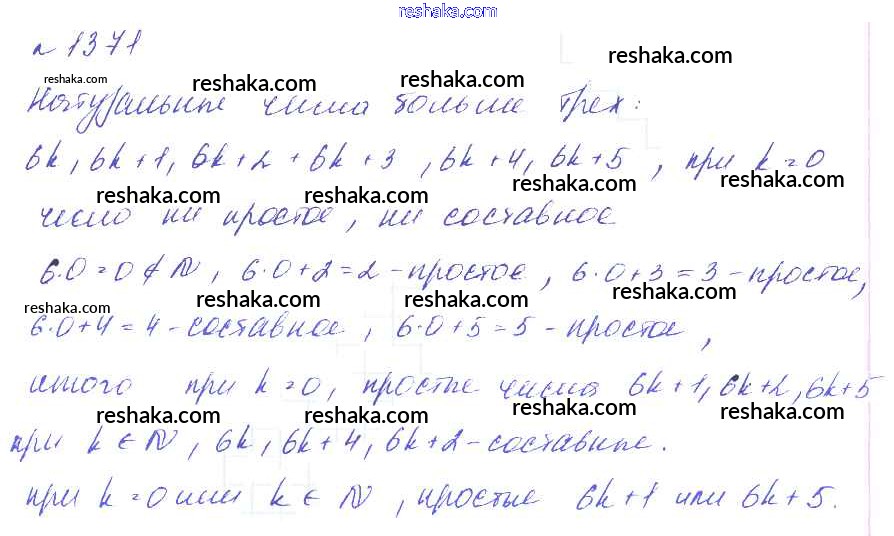 reshaka.com
№ 1371
reshaka.com reshaka.com reshaka.com reshaka.com
Натуральные числа больше трех:
6k, 6k+1, 6k+2 + 6k+3, 6k+4, 6k+5, при k=0
reshaka.com reshaka.com reshaka.com reshaka.com
число ни простое, ни составное
6·0=0∉N, 6·0+2=2-простое, 6·0+3=3-простое,
reshaka.com reshaka.com reshaka.com reshaka.com
6·0+4=4-составное, 6·0+5=5-простое,
итого при k=0, простые числа 6k+1, 6k+2, 6k+5
reshaka.com reshaka.com reshaka.com reshaka.com
при k∈N, 6k, 6k+4, 6k+2-составные.
при k=0 или k∈N, простые 6k+1 или 6k+5.